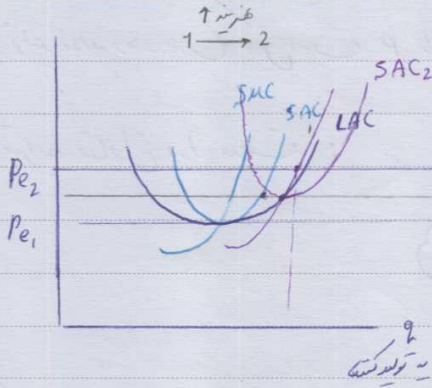 هزینه ↑
1 → 2
SAC₂
SMC
SAC₁
LAC
Pe₂
Pe₁
q
یه تولید کننده